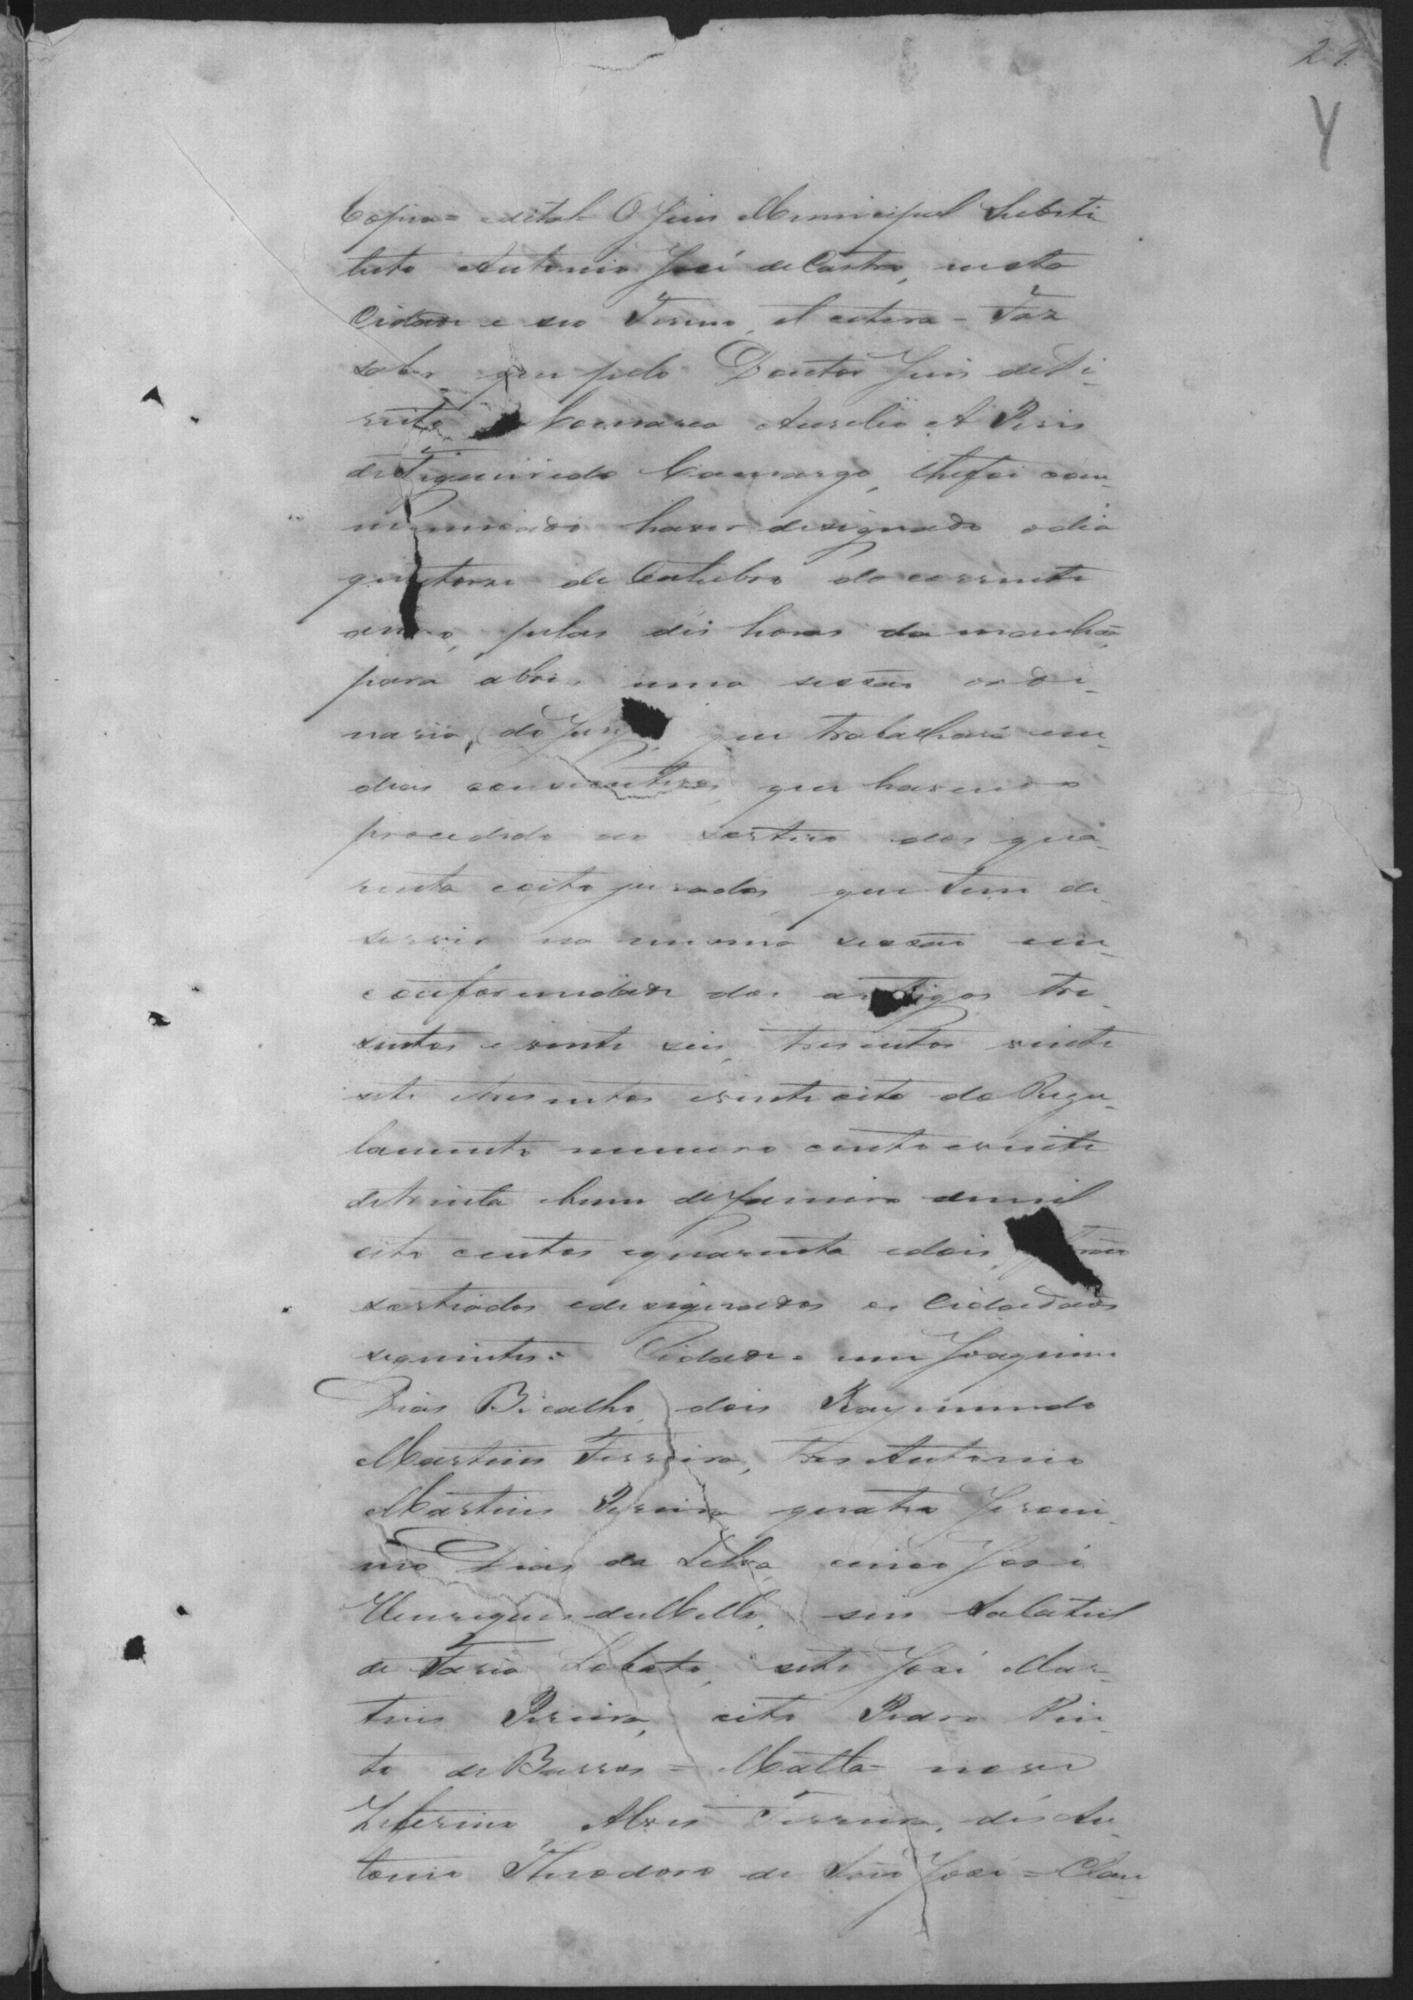 21
Y
Copia = edital O Juis Municipal Substi
tuto Antonio José de Castro, nesta
Cidade e seo Termo, et cetera - Faz
saber que pelo Doutor Juis de Di-
reito Comarca Aurelio A Pires
de Figueiredo Camargo, lhe foi com-
municado haver designado o dia
quatorze de Outubro do corrente
anno, pelas dés horas da manhã,
para abrir uma sessão ordi-
naria, do Jury, que trabalhará em
dias consecutivos, que havendo
procedido ao sorteio dos qua-
renta e oito jurados que tem de
servir na mesma sessão em
conformidade dos artigos tre-
sentos e vinte seis, tresentos vinte
sete e tresentos e vinte oito do Regu-
lamento numero cento e vinte
de trinta e hum de Janeiro de mil
oito centos e quarenta e dois, forão
sorteados e designados os Cidadãos
seguintes: Cidade = um Joaquim
Dias Bicalho, dois Raymundo
Martins Ferreira, tres Antonio
Martins Pereira quatro Jeroni-
mo Dias da Silva, cinco José
Henriques de Mello, seis Salatiel
de Faria Lobato, sete José Mar-
tins Pereira, oito Pedro Pin-
to de Barros = Matta = nove
Zeferino Alves Ferreira, dés An-
tonio Theodoro de São José =